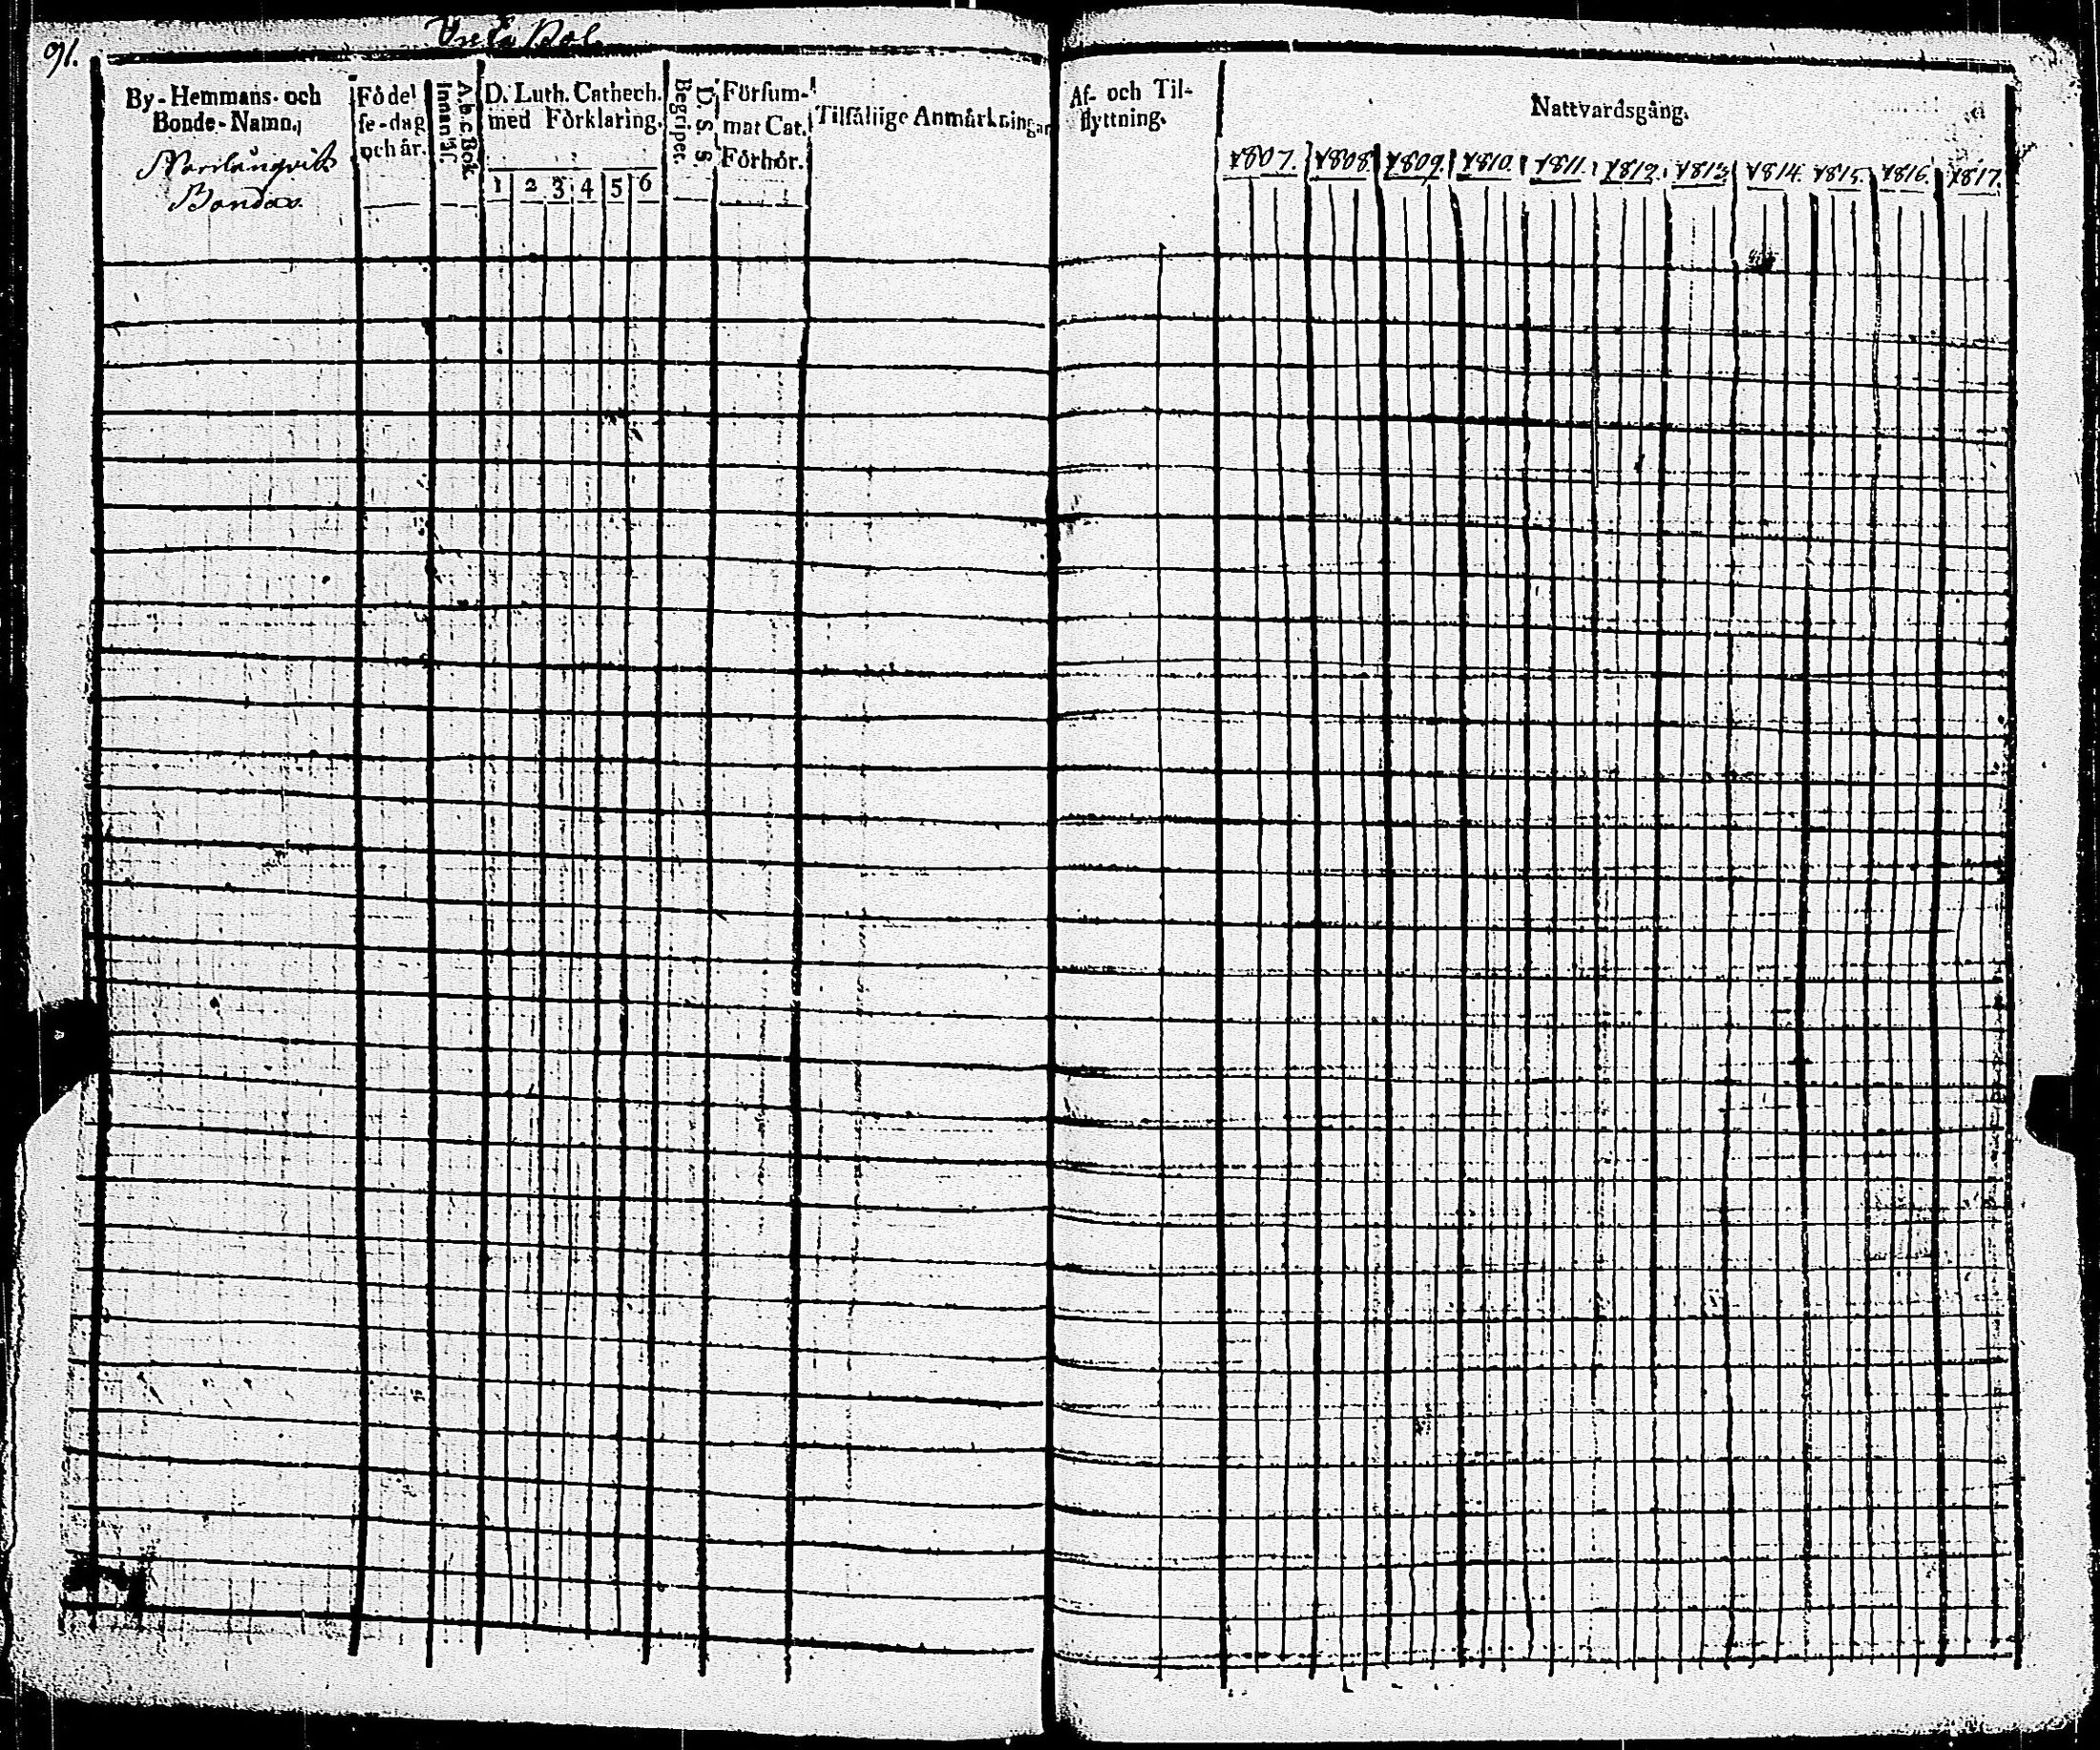 91.
By-Hemmans- och
Bonde-Namn.
Bondas
Födel
se-dag
och år.
A.b.c Bok
Innan läs.
D. Luth. Cathech.
med Förklaring.
1 2 3 4 5 6
D. S. S.
Begriper.
Försum-
mat Cat.
Förhör.
Tilfällige Anmärkningar
Af- och Til-
flyttning.
Nattvardsgång.
1807. 1808. 1809. 1810. 1811. 1812. 1813. 1814. 1815. 1816. 1817.